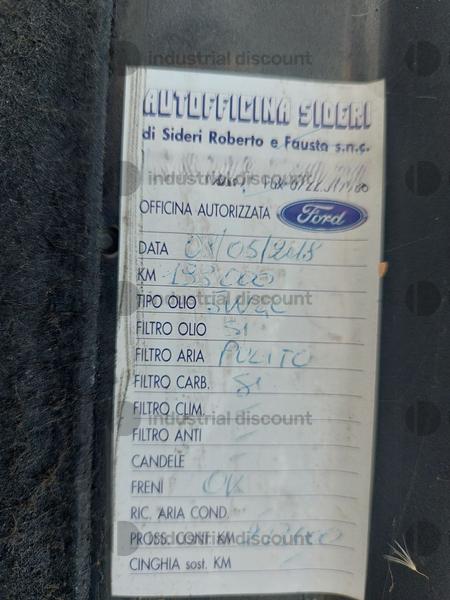 AUTOFFICINA SIDERI
di Sideri Roberto e Fausto s.n.c.
OFFICINA AUTORIZZATA Ford
DATA
KM
TIPO OLIO
FILTRO OLIO SI
FILTRO ARIA PULITO
FILTRO CARB. SI
FILTRO CLIM. -
FILTRO ANTI -
CANDELE -
FRENI OK
RIC. ARIA COND.
PROSS. CONT. KM
CINGHIA sost. KM
industrial discount
industrial discount
industrial discount
industrial discount
industrial discount